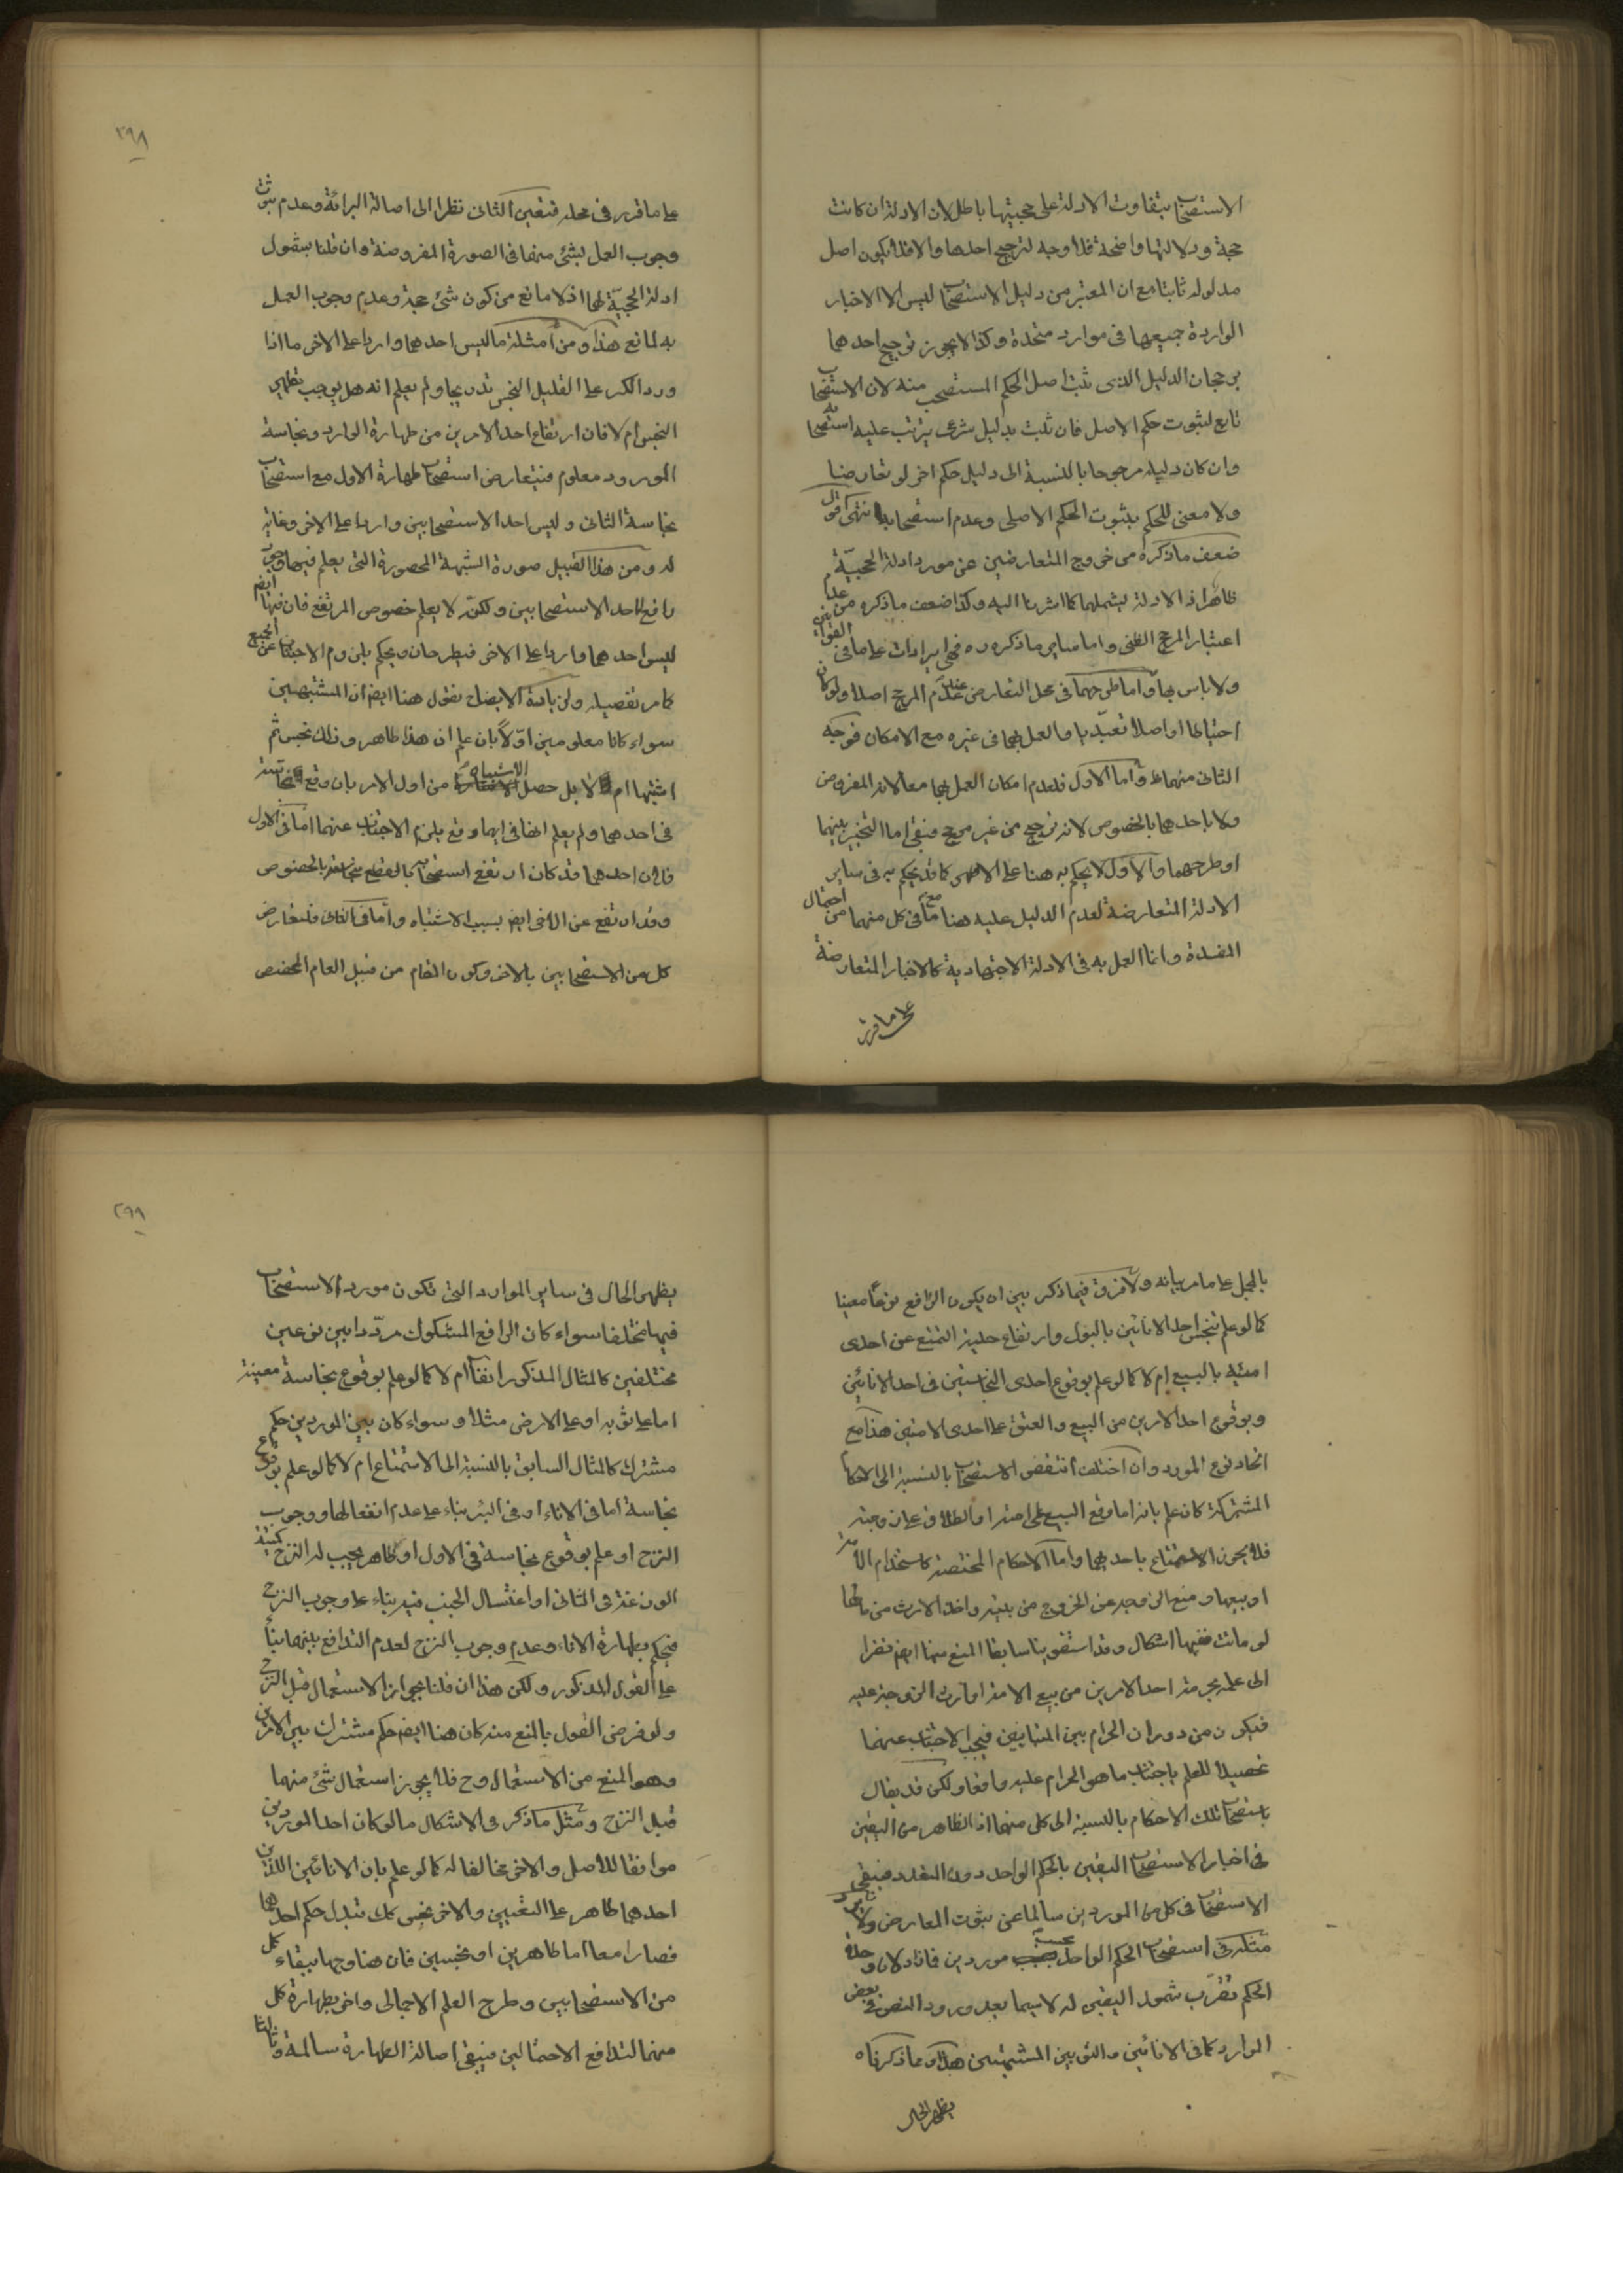 الاستصحاب بتفاوت الادلة على حجيتها باطل لان الادلة ان كانت
حجة ودلالتها واضحة فلا وجه لترجيح احدها والا فلا يكون اصل
مدلوله ثابتا مع ان المعتبر من دليل الاستصحاب ليس الا الاخبار
الواردة جميعها فى موارد متحدة وكذا لا يجوز ترجيح احدهما
برجحان الدليل الذى ثبت اصل الحكم المستصحب منه لان الاستصحاب
تابع لثبوت حكم الاصل فان ثبت بدليل شرعى يترتب عليه استصحابه
وان كان دليله مرجوحا بالنسبة الى دليل حكم اخر لو تعارضا
ولا معنى للحكم بثبوت الحكم الاصلى وعدم استصحابه انتهى اقول
ضعف ما ذكره من خروج المتعارضين عن مورد ادلة الحجية
ظاهر اذ الادلة يشملهما كما اشرنا اليه وكذا ضعف ما ذكره من عدم
اعتبار المرجح الظنى واما ساير ما ذكره ره فهى ايرادات على ما فى القوانين
ولا باس بها واما طرحهما فى محل التعارض عند عدم المرجح اصلا ولو كان
احتياطا او اصلا تعبديا والعمل بهما فى غيره مع الامكان فوجه
الثانى منهما ظ واما الاول فلعدم امكان العمل بهما معا لانه المفروض
ولا باحدهما بالخصوص لانه ترجيح من غير مرجح فبقى اما التخيير بينهما
او طرحهما والاول لا يحكم به هنا على الاظهر كما قد يحكم به فى ساير
الادلة المتعارضة لعدم الدليل عليه هنا مع ما فى كل منهما من احتمال
المفسدة وانما العمل به فى الادلة الاجتهادية كالاخبار المتعارضة
على ما قرر
٢٩٨
على ما قرر فى محله فتعين الثانى نظرا الى اصالة البرائة وعدم ثبوت
وجوب العمل بشئ منهما فى الصورة المفروضة وان قلنا بشمول
ادلة الحجية لهما اذ لا مانع من كون شئ حجة وعدم وجوب العمل
به لمانع هذا ومن امثلة ما ليس احدهما واردا على الاخر ما اذا
ورد الكر على القليل النجس تدريجا ولم يعلم انه هل يوجب تطهير
النجس ام لا فان ارتفاع احد الامرين من طهارة الوارد ونجاسة
المورود معلوم فيتعارض استصحاب طهارة الاول مع استصحاب
نجاسة الثانى وليس احد الاستصحابين واردا على الاخر وغاية
له ومن هذا القبيل صورة الشبهة المحصورة التى يعلم فيها وجود
رافع لاحد الاستصحابين ولكن لا يعلم خصوص المرتفع فان فيها ايضا
ليس احدهما واردا على الاخر فيطرحان ويحكم بلزوم الاجتناب عن الجميع
كما مر تفصيله ولزيادة الايضاح نقول هنا ايضا ان المشتبهين
سواء كانا معلومين اولا بان علم ان هذا طاهر وذلك نجس ثم
اشتبها ام لا بل حصل الاشتباه من اول الامر بان وقع نجاسة
فى احدهما ولم يعلم انها فى ايهما وقع يلزم الاجتناب عنهما اما فى الاول
فلان احدهما قد كان ارتفع استصحابه بالقطع بنجاسته بالخصوص
وقد ارتفع عن الاخر ايضا بسبب الاشتباه واما فى الثانى فلتعارض
كل من الاستصحابين بالاخر وكون المقام من قبيل العام المخصص
بالمجمل على ما مر بيانه ولا فرق فيما ذكر بين ان يكون الرافع نوعا معينا
كما لو علم تنجس احد الانائين بالبول وارتفاع حلية التمتع عن احدى
امتيه بالبيع ام لا كما لو علم بوقوع احدى النجاستين فى احد الانائين
وبوقوع احد الامرين من البيع والعتق على احدى الامتين هذا مع
اتحاد نوع المورد وان اختلف انتقض الاستصحاب بالنسبة الى الاحكام
المشتركة كان علم بانه اما وقع البيع على امته او الطلاق على زوجته
فلا يجوز الاستمتاع باحديهما واما الاحكام المختصة كاستخدام الامة
او بيعها ومنع الزوجة عن الخروج من بيته واخذ الارث من مالها
لو ماتت ففيها اشكال وقد استقوينا سابقا المنع منها ايضا نظرا
الى علمه بحرمة احد الامرين من بيع الامة او ارث الزوجة عليه
فيكون من دوران الحرام بين المتباينين فيجب الاجتناب عنهما
تحصيلا للعلم باجتناب ما هو الحرام عليه واقعا ولكن قد يقال
باستصحاب تلك الاحكام بالنسبة الى كل منهما اذ الظاهر من اليقين
فى اخبار الاستصحاب اليقين بالحكم الواحد دون المتعدد فيبقى
الاستصحاب فى كل من الموردين سالما عن ثبوت المعارض ولا يرد
مثله فى استصحاب الحكم الواحد بحسب موردين فانا دلانا وحدة
الحكم تقرب شمول اليقين له لا سيما بعد ورود النص فى بعض
الموارد كما فى الانائين والثوبين المشتبهين هذا ومما ذكرناه
يظهر الحال
٢٩٩
يظهر الحال فى ساير الموارد التى تكون مورد الاستصحاب
فيها مختلفا سواء كان الرافع المشكوك مرددا بين نوعين
مختلفين كالمثال المذكور انفا ام لا كما لو علم بوقوع نجاسة معينة
اما على ثوبه او على الارض مثلا وسواء كان بين الموردين حكم
مشترك كالمثال السابق بالنسبة الى الاستمتاع ام لا كما لو علم بوقوع
نجاسة اما فى الاناء او فى البئر بناء على عدم انفعالها ووجوب
النزح او علم بوقوع نجاسة فى الاول او طاهر يجب له النزح كميتة
الوزغة فى الثانى او اغتسال الجنب فيه بناء على وجوب النزح
فيحكم بطهارة الاناء وعدم وجوب النزح لعدم التدافع بينهما بناء
على القول المذكور ولكن هذا ان قلنا بجواز الاستعمال قبل النزح
ولو فرض القول بالمنع منه كان هنا ايضا حكم مشترك بين الامرين
وهو المنع من الاستعمال وح فلا يجوز استعمال شئ منهما
قبل النزح ومثل ما ذكر فى الاشكال ما لو كان احد الموردين
موافقا للاصل والاخر مخالفا له كما لو علم بان الانائين اللذين
احدهما طاهر على التعيين والاخر نجس كك تبدل حكم احدهما
فصارا معا اما طاهرين او نجسين فان هنا وجها ببقاء كل
من الاستصحابين وطرح العلم الاجمالى واخر بطهارة كل
منهما لتدافع الاحتمالين فيبقى اصالة الطهارة سالمة وثالثا